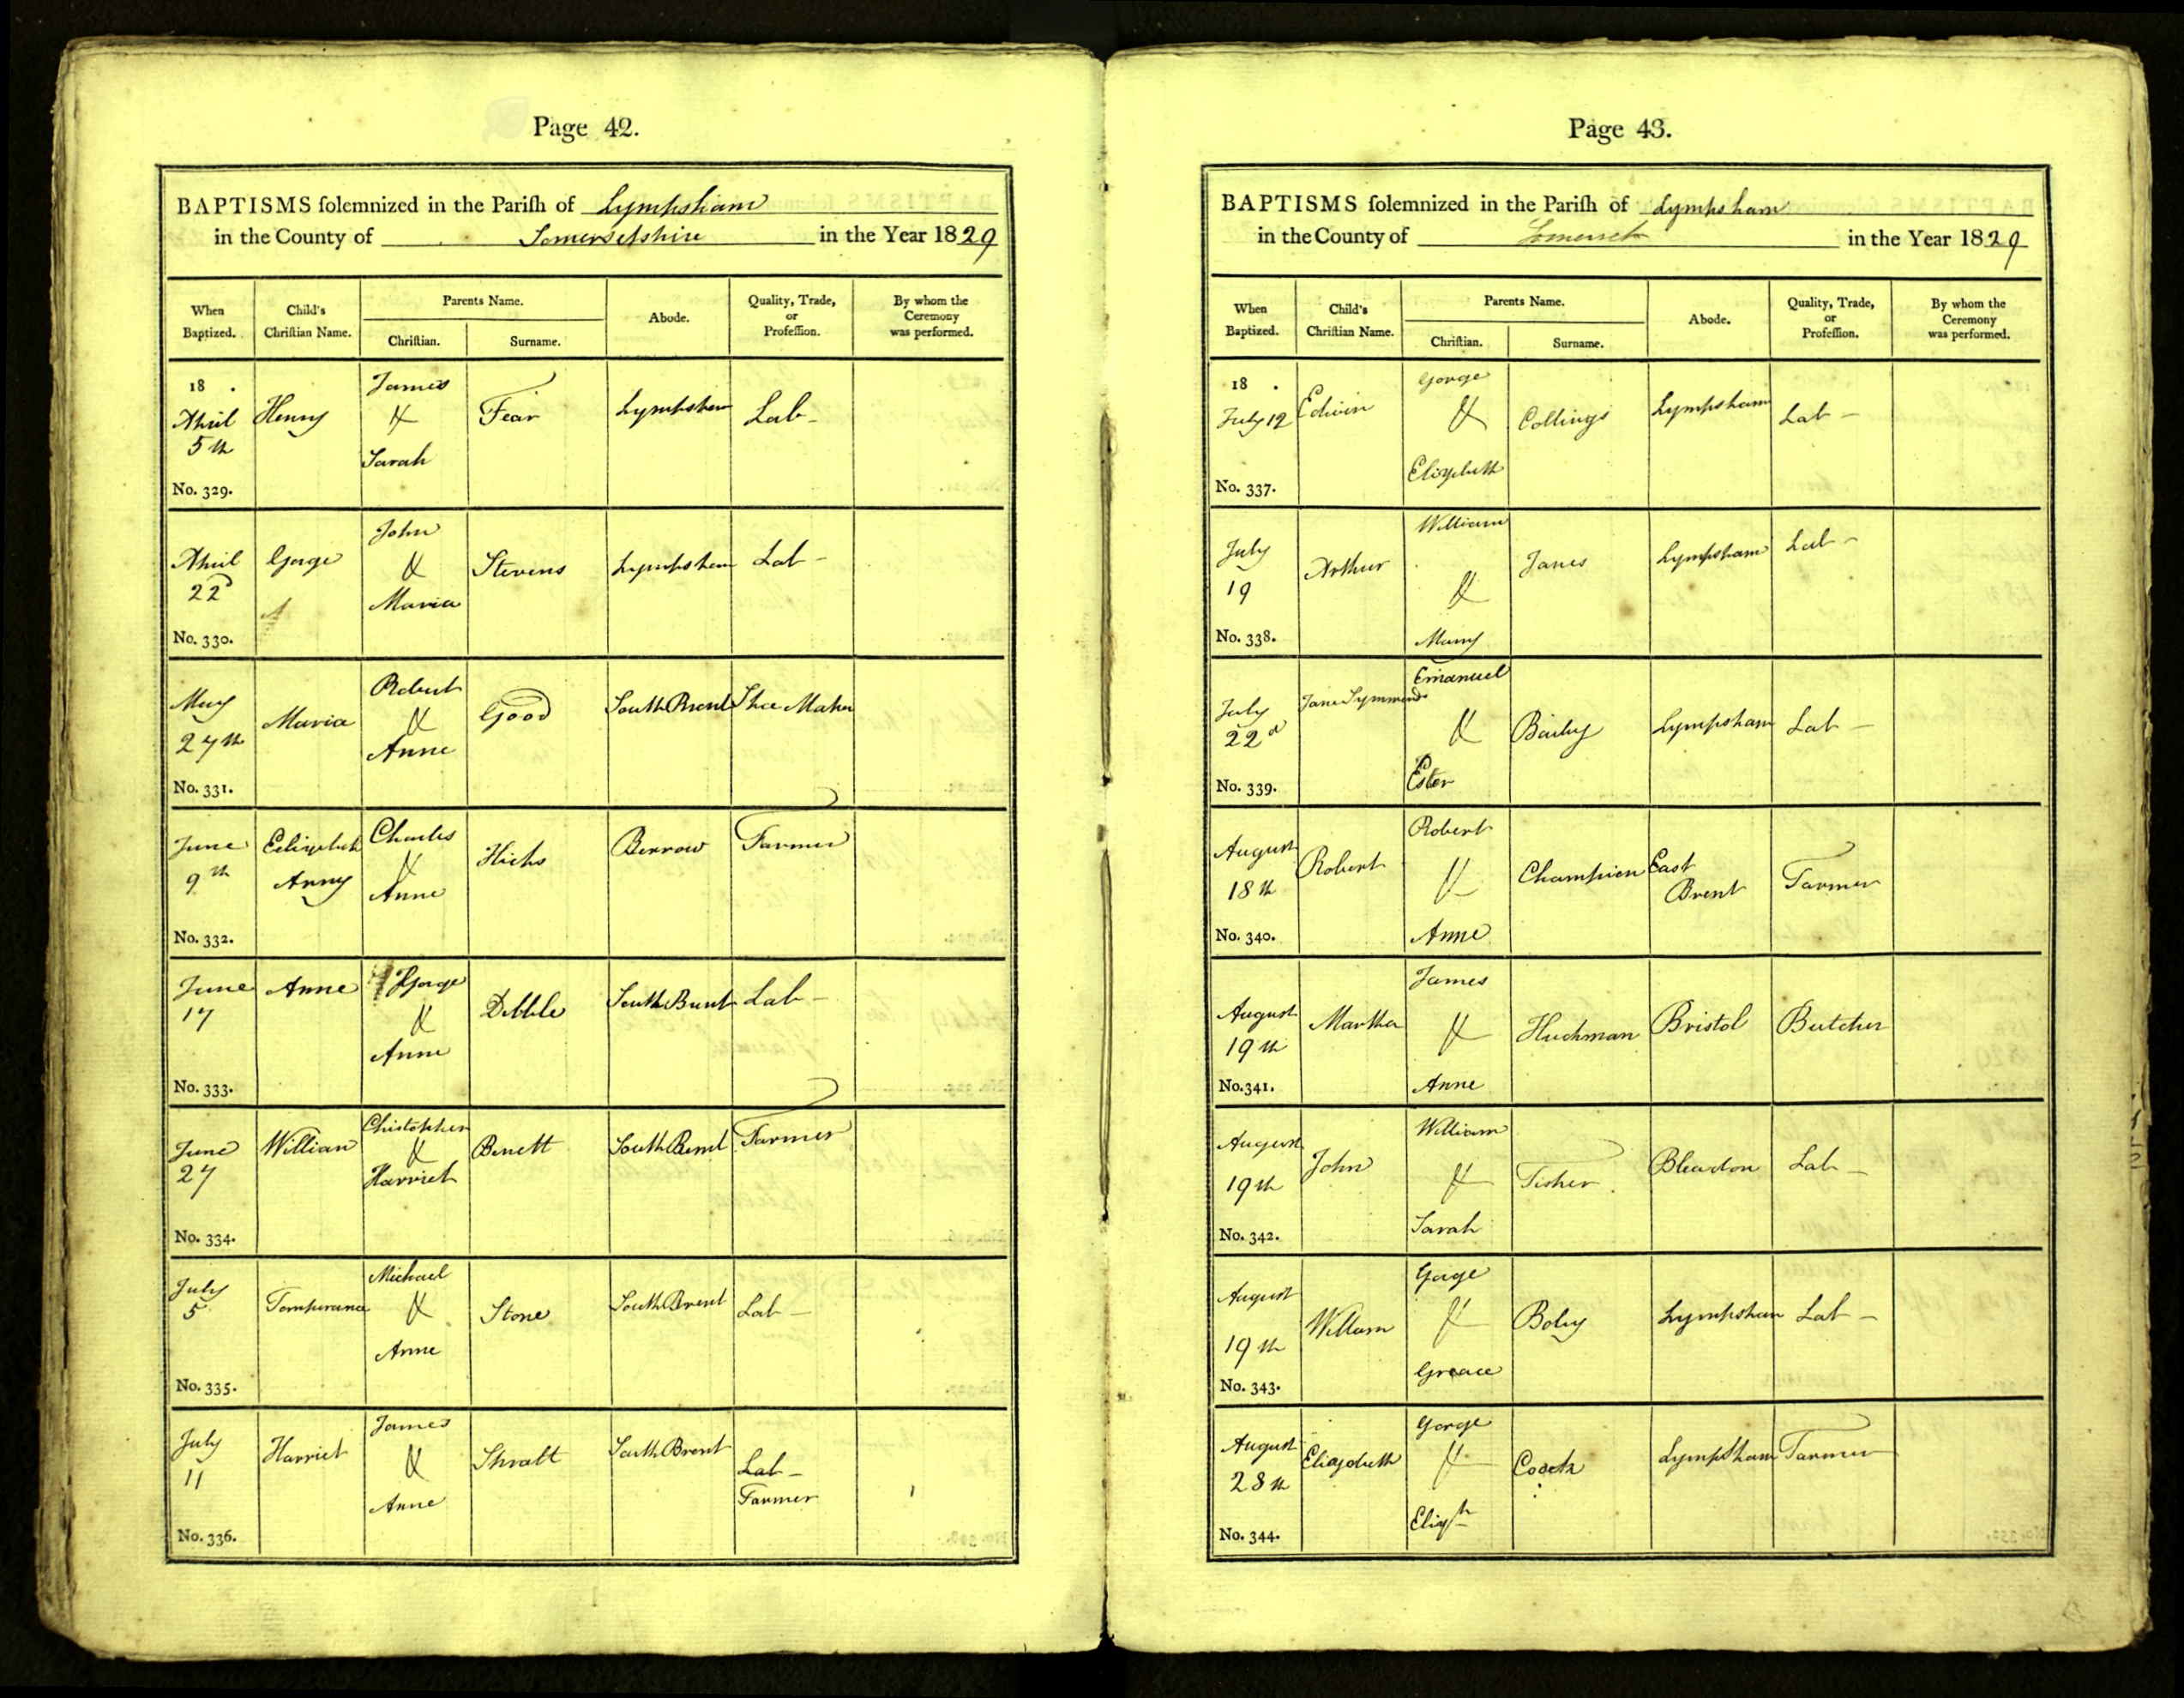 Page 42.
BAPTISMS solemnized in the Parish of Lympsham
in the County of Somersetshire in the Year 1829
When Baptized.
Child's Christian Name.
Parents Name.
Christian.
Surname.
Abode.
Quality, Trade, or Profession.
By whom the Ceremony was performed.
18 .
April 5th
No. 329.
Henry
James & Sarah
Fear
Lympsham
Lab-
April 22d
No. 330.
Gorge
John & Maria
Stevens
Lympsham
Lab-
May 27th
No. 331.
Maria
Robert & Anne
Good
South Brent
Shoe Maker
June 9th
No. 332.
Anny
Charles & Anne
Hicks
Berrow
Farmer
June 17
No. 333.
Anne
Gorge & Anne
Dibble
South Brent
Lab-
June 27
No. 334.
William
Christopher & Harriet
Benett
South Brent
Farmer
July 5
No. 335.
Temperance
Michael & Anne
Stone
South Brent
Lab-
July 11
No. 336.
Harriet
James & Anne
South Brent
Lab-
Farmer
Page 43.
BAPTISMS solemnized in the Parish of Lympsham
in the County of Somerset in the Year 1829
When Baptized.
Child's Christian Name.
Parents Name.
Christian.
Surname.
Abode.
Quality, Trade, or Profession.
By whom the Ceremony was performed.
18 .
July 12
No. 337.
Edwin
Gorge & Elizebeth
Collings
Lympsham
Lab-
July 19
No. 338.
Arthur
William & Mary
Janes
Lympsham
Lab-
July 22d
No. 339.
Jane Symmonds
Emanuel & Ester
Baily
Lympsham
Lab-
August 18th
No. 340.
Robert
Robert & Anne
Champion
East Brent
Farmer
August 19th
No. 341.
Martha
James & Anne
Huchman
Bristol
Butcher
August 19th
No. 342.
John
William & Sarah
Fisher
Bleadon
Lab-
August 19th
No. 343.
William
Gorge & Greace
Boley
Lympsham
Lab-
August 28th
No. 344.
Eliazebeth
Gorge &
Lympsham
Farmer